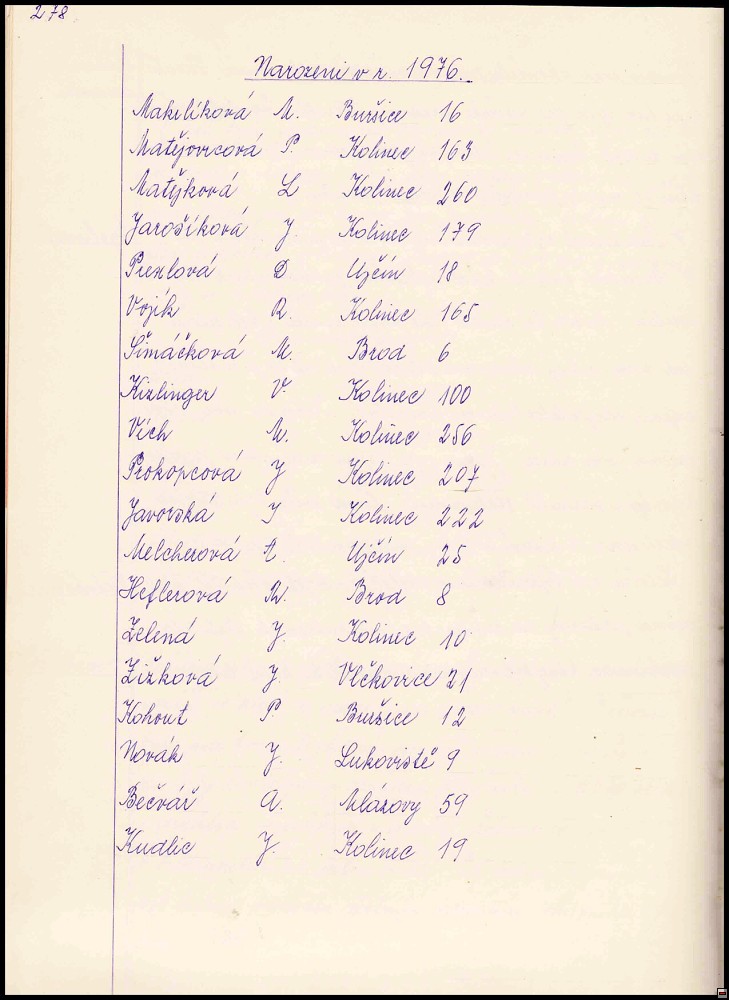 278
Narozeni v r. 1976.
Makrlíková M. Buršice 16
Matějovicová P. Kolinec 163
Matějková L Kolinec 260
Jarošíková J. Kolinec 179
Prexlová D Ujčín 18
Vojík R. Kolinec 165
Šimáčková M. Brod 6
Kizlinger V. Kolinec 100
Vích M. Kolinec 256
Prokopcová J Kolinec 207
Javorská I Kolinec 222
Melcherová A. Ujčín 25
Heflerová M. Brod 8
Zelená J. Kolinec 10
Žižková J. Vlčkovice 21
Kohout P. Buršice 12
Novák J. Lukoviště 9
Bečvář A. Mlázovy 59
Kudlic J. Kolinec 19